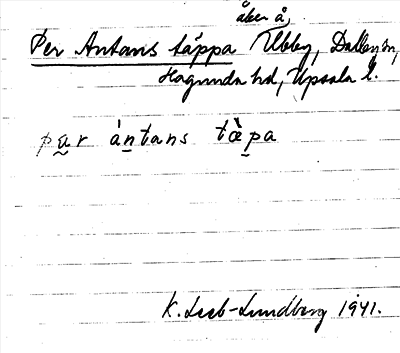 åker å,
Per Antans täppa Ubby, Dalby sn,
Hagunda hd, Upsala l.
pa̰r àn̠tans tæ̀p̠a
K. Leeb-Lundberg 1941.